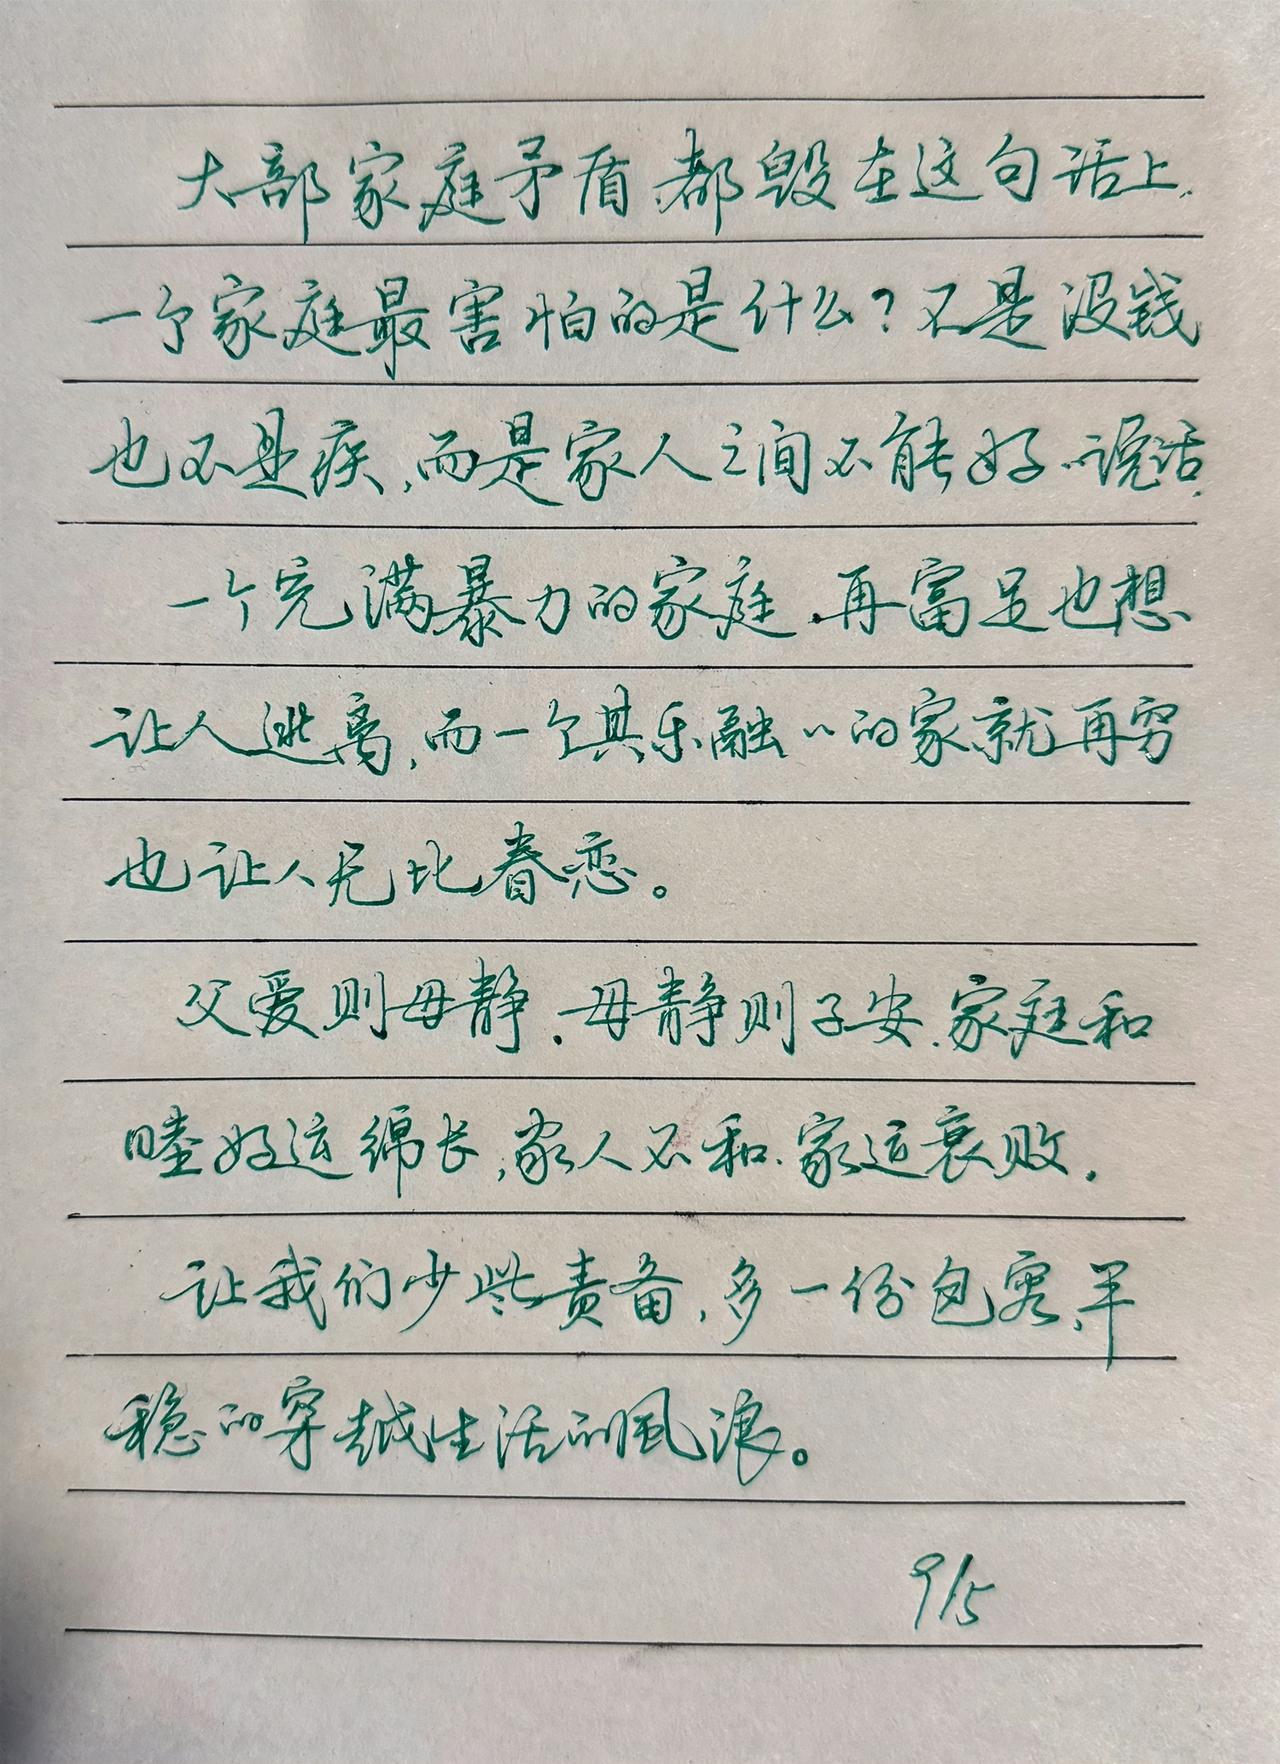 大部家庭矛盾,都毁在这句话上.
一个家庭最害怕的是什么?不是没钱
也不是疾,而是家人之间不能好〻说话.
一个充满暴力的家庭.再富足也想
让人逃离,而一个其乐融〻的家就再穷
也让人无比眷恋。
父爱则母静.母静则子安.家庭和
睦好运绵长,家人不和.家运衰败.
让我们少些责备,多一份包容,平
稳的穿越生活的风浪。
9/5